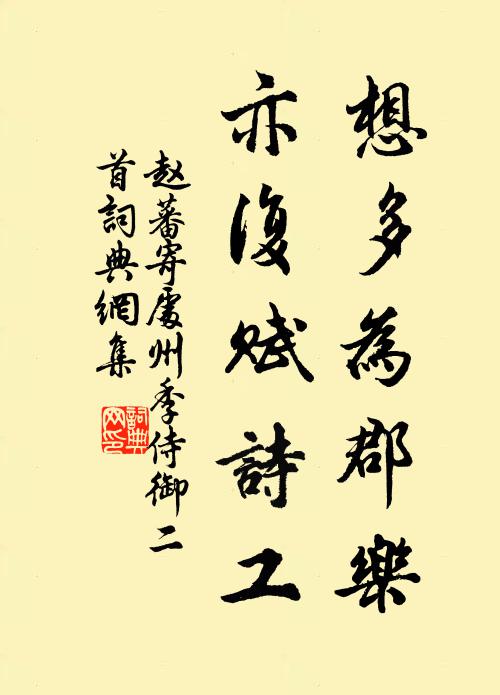 想多為郡樂
亦復賦詩工
赵蕃寄處州季侍御二
首詞典網集
詞典网印